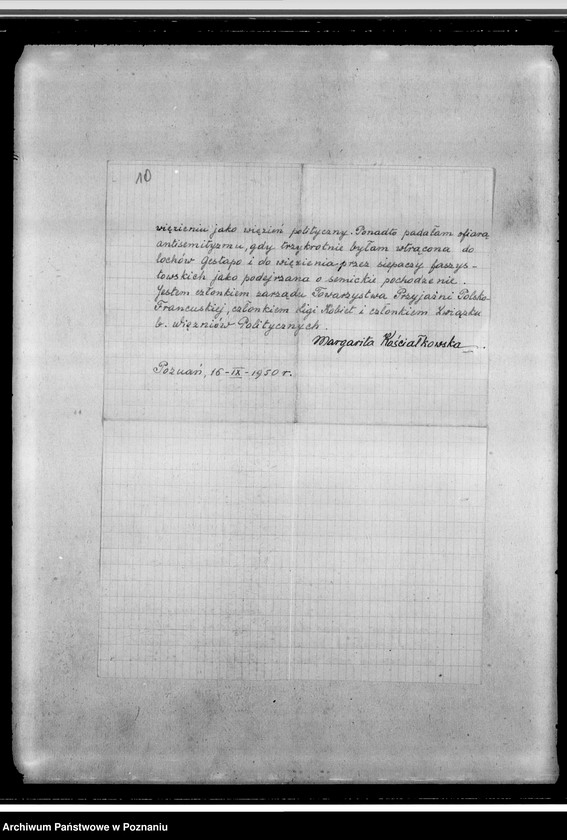 10
więzieniu jako więzień polityczny. Ponadto padałam ofiarą
antisemityzmu, gdy trzykrotnie byłam wtrącona do
lochów Gestapo i do więzienia przez siepaczy faszys-
towskich jako podejrzana o semickie pochodzenie.
Jestem członkiem zarządu Towarzystwa Przyjaźni Polsko-
Francuskiej, członkiem Ligi Kobiet i członkiem Związku
b. Więzniów Politycznych.
Margarita Kościałkowska.
Poznań, 16-IX-1950 r.
Archiwum Państwowe w Poznaniu